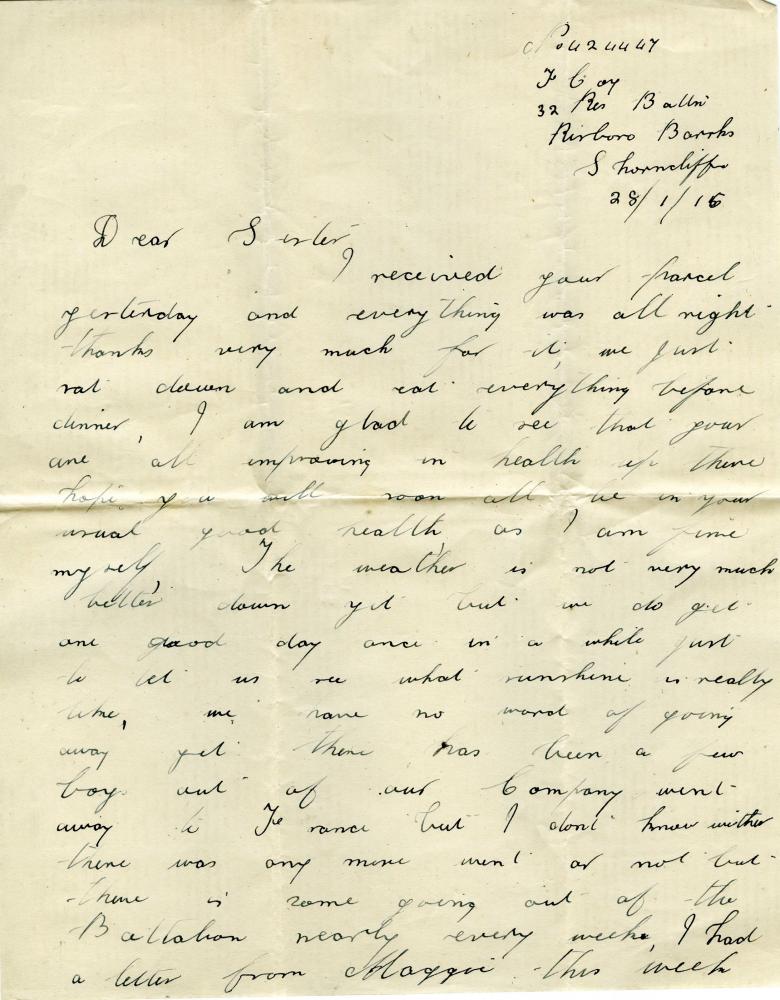 No 424447
F Coy
32 Res Battn
Risboro Barrks
Shorncliffe
28/1/16
Dear Sister,
I received your parcel
yesterday and everything was all right
thanks very much for it, we just
sat down and eat everything before
dinner, I am glad to see that your
are all improving in health up there
hope you will soon all be in your
usual good health, as I am fine
myself, The weather is not very much
better down yet but we do get
one good day once in a while just
to let us see what sunshine is really
like, we have no word of going
away yet there has been a few
boys out of our Company went
away to France but I dont know wither
there was any more went or not but
there is some going out of the
Battalion nearly every week, I had
a letter from Maggie this week